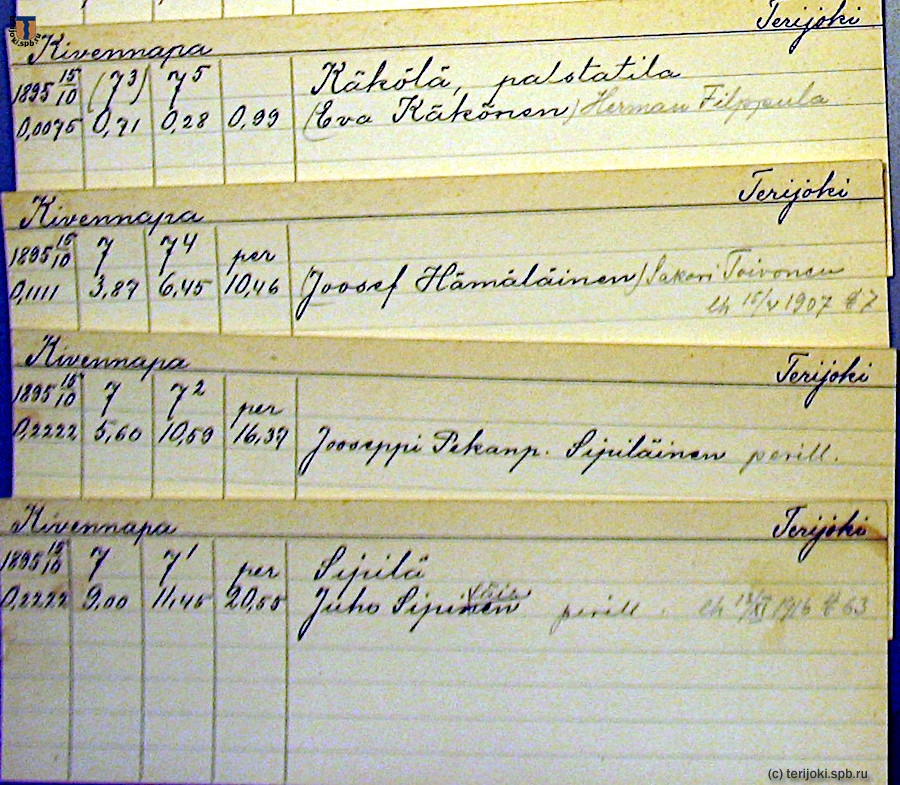 Terijoki
Kivennapa
1895 15/10 (7³) 7⁵ Käkölä, palstatila
0,0075 0,71 0,28 0,99 (Eva Käkönen) Herman Filppula
Terijoki
Kivennapa
1895 15/10 7 7⁴ per
0,1111 3,87 6,45 10,46 (Joosef Hämäläinen) Sakari Toivonen
eh 15/V 1907 § 7
Kivennapa
Terijoki
1895 15/10 7 7² per
0,2222 5,60 10,59 16,37 Jooseppi Pekanp. Sipiläinen perill.
Kivennapa
Terijoki
1895 15/10 7 7¹ per Sipilä
0,2222 9,00 11,45 20,55 Juho Sipinen läis perill. eh 1916 § 63
(c) terijoki.spb.ru